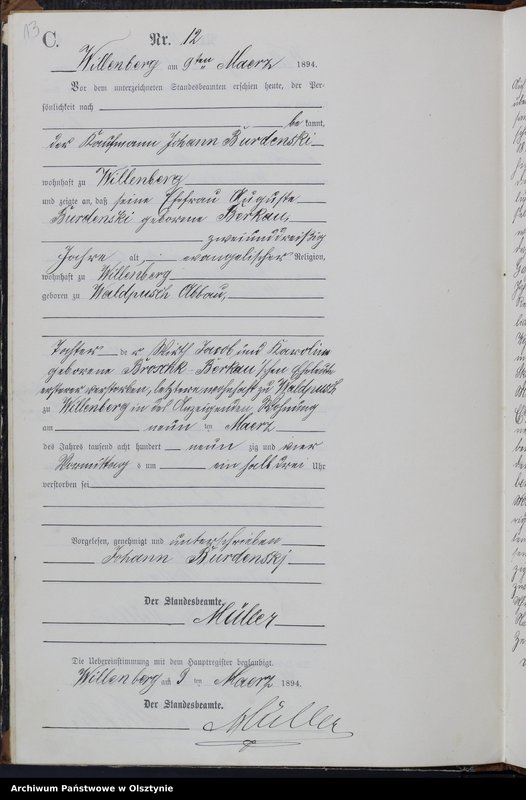 13
C. Nr. 12
Willenberg am 9ten Maerz 1894.
Vor dem unterzeichneten Standesbeamten erschien heute, der Per-
sönlichkeit nach
be kannt,
der Kaufmann Johann Burdenski
wohnhaft zu Willenberg
und zeigte an, daß seine Ehefrau Auguste
Burdenski geborene Berkau,
zweiunddreißig
Jahre alt, evangelischer Religion,
wohnhaft zu Willenberg
geboren zu Waldpusch Abbau,
Tochter der Wirth Jacob und Karoline
geborene Broschk - Berkau'schen Eheleute
ersterer verstorben, letztere wohnhaft zu Waldpusch
zu Willenberg in des Anzeigenden Wohnung
am neun ten Maerz
des Jahres tausend acht hundert neun zig und vier
Vormittag s um ein halb drei Uhr
verstorben sei
Vorgelesen, genehmigt und unterschrieben
Johann Burdenskj
Der Standesbeamte.
Müller
Die Uebereinstimmung mit dem Hauptregister beglaubigt.
Willenberg am 9 ten Maerz 1894.
Der Standesbeamte.
Müller
Archiwum Państwowe w Olsztynie